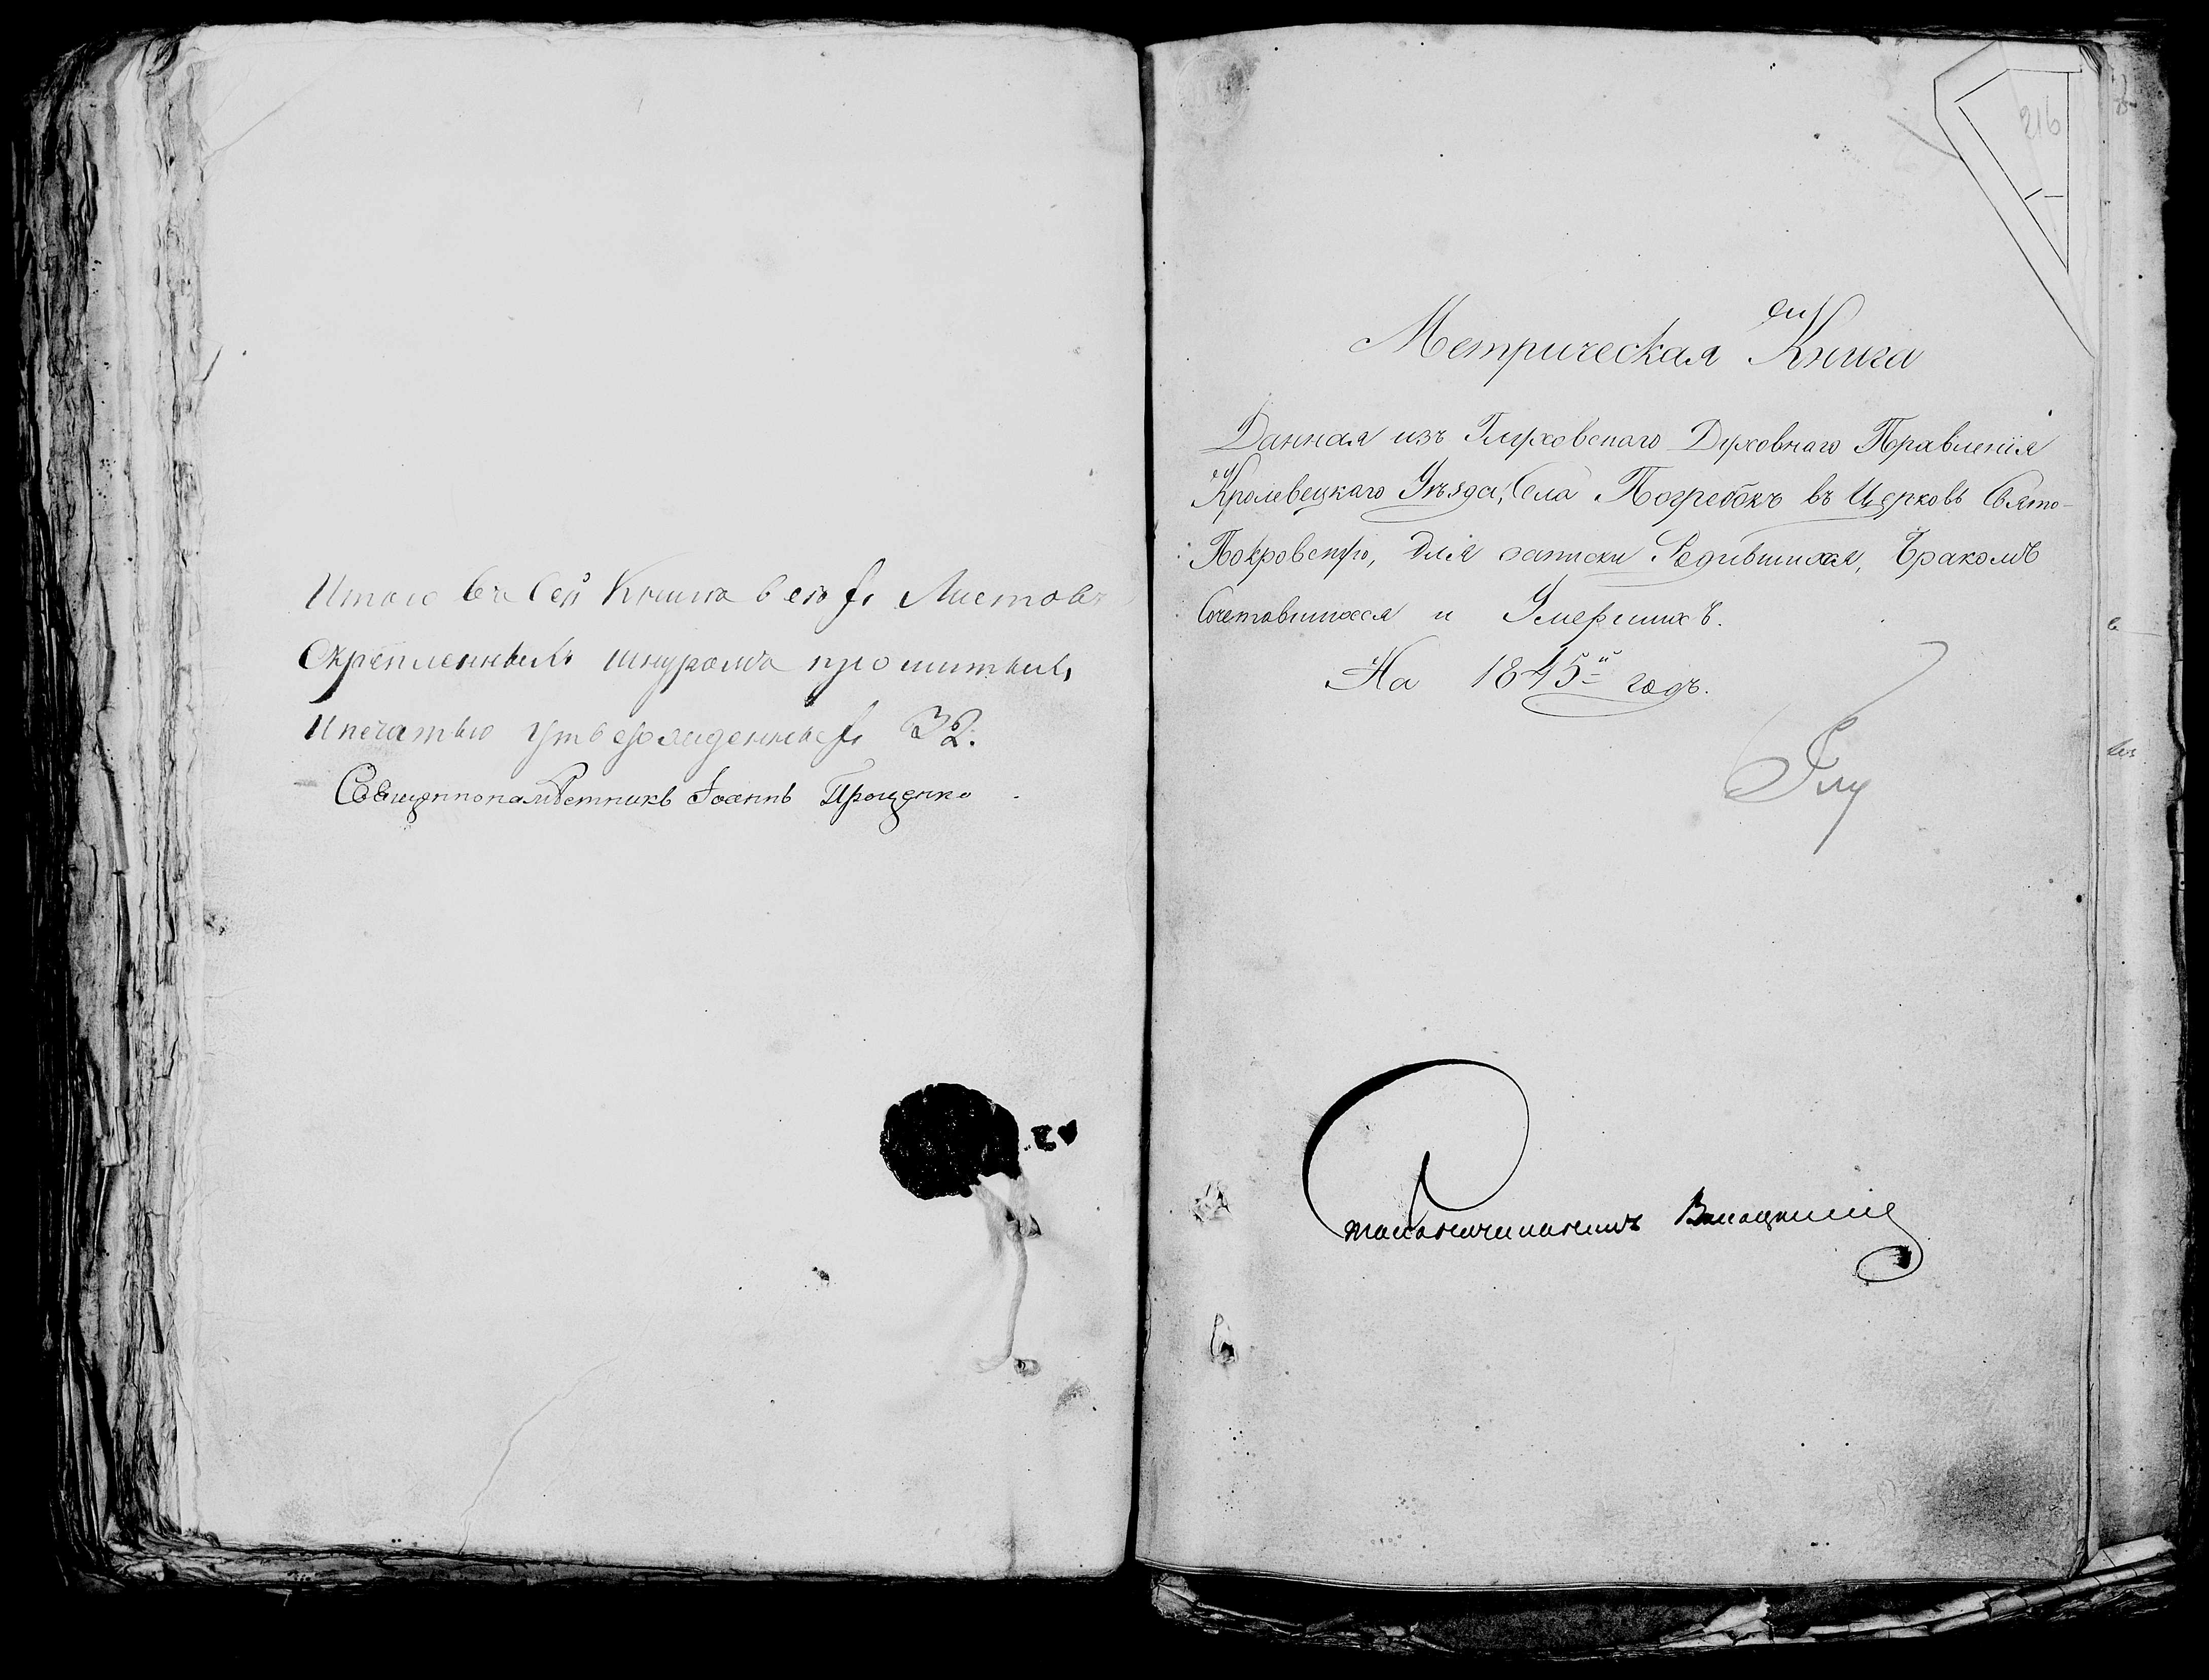 Итого въ сей Книга всехъ Листовъ
Скрепленныхъ шнуромъ прошитыхъ
И печатью утвержденныхъ 32.
Священнонамѣстникъ Іоаннъ Проценко
216
Метрическая Книга
Данная изъ Глуховскаго Духовнаго Правленія
Кролевецкаго Уѣзда, Села Погребокъ въ Церковь Свято-
Покровскую, для записки Родившихся, Бракомъ
Сочетавшихся и Умершихъ.
На 1845й годъ.
Глу